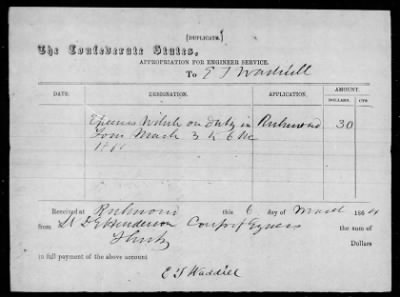 [DUPLICATE.]
The Confederate States,
APPROPRIATION FOR ENGINEER SERVICE.
To E T Waddill
DATE. DESIGNATION. APPLICATION. AMOUNT.
DOLLARS. CTS
Expenses while on duty in Richmond 30
from March 3 to 6 inc
Received at Richmond this 6 day of March 1864
from Lt D E Henderson Corps of Egneers the sum of
Thirty Dollars
in full payment of the above account
E T Waddill